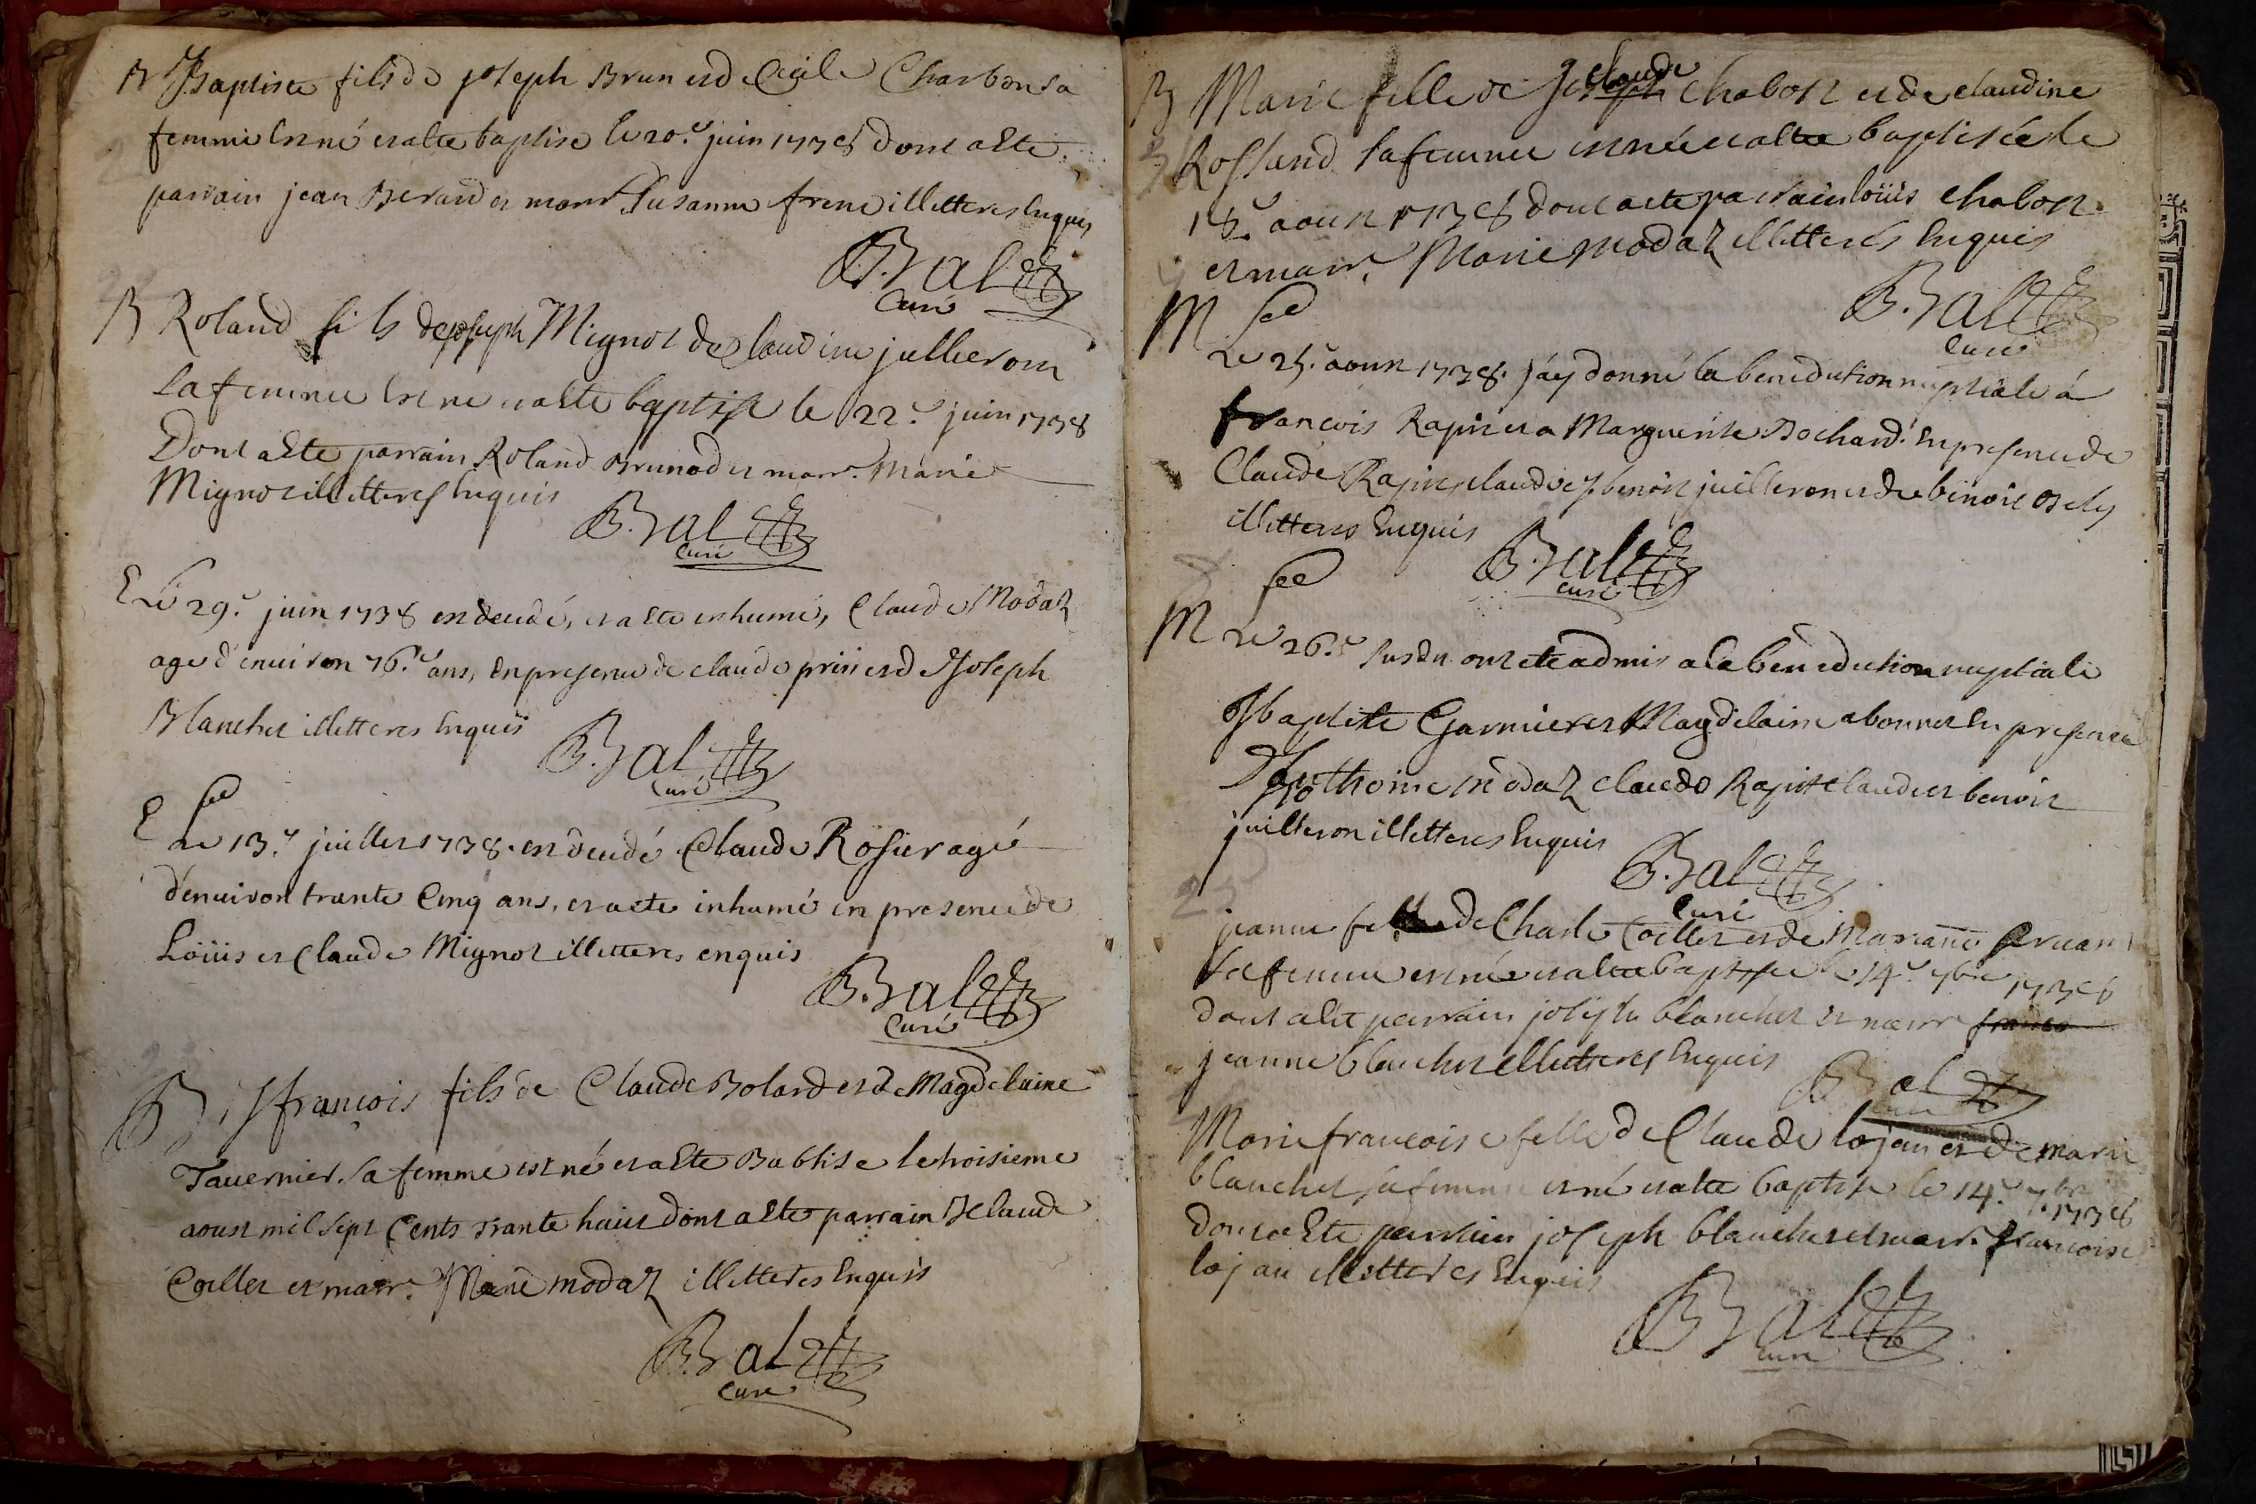 B JBaptiste fils de joseph Brun et de Cecile Charbon sa
femme est né et a ete baptise le 20.e juin 1738 dont acte
parrain jean Berard et marr. Susanne frene illetteres Enquis
B. Bal
Curé
B Roland fils de joseph Mignot de Claudine jullieron
sa femme est né et a ete baptisé le 22.e juin 1738
Dont acte parrain Roland Brunod et marr. Marie
Mignot illetteres Enquis
B. Bal
Curé
E Le 29.e juin 1738 en decedé, et a ete enhumé, Claude Modaz
age d'environ 76.e ans, En presence de claude prin et de Joseph
Blanchet illetteres Enquis
B. Bal
Curé
E
Le 13.e juillet 1738. en decedé Claude Rosier agé
d'environ trante Cinq ans, et a ete inhumé en presence de
Loüis et Claude Mignot illetteres enquis
B. Bal
Curé
B, Jfrançois fils de Claude Bolard et de Magdelaine
Tavernier. sa femme est né et a ete Babtise le troisieme
aoust mil sept Cents trante huit dont acte parrain Claude
Coillet et marr. Marie modaz illetteres Enquis
B. Bal
Curé
B Marie fille de Joseph claude Chabost et de claudine
Rossand sa femme est née et a ete baptisée le
18.e aoust 1738 dont acte parrain loüis Chabost
et marr. Marie Modaz illetterés Enquis
B. Bal
Curé
M
Le 25.e aoust 1738. j'ay donné la benediction nuptiale á
françois Rapin et a Marguerite Bochard. En presence de
Claude Rapin, claude Jbenoit juilleron et de benoit
illetteres Enquis
B. Bal
Curé
M Le 26.e susdit ont ete admis a la benediction nuptiale
Jbaptiste Garnier et Magdelaine abonnet En presence
D'Anthoine modaz claude Rapin claude et benoit
juilleron illetteres Enquis
B. Bal
Curé
jeanne fille de Charle Coillet et de Marianne
sa femme est née et a ete baptisée le 14.e 7bre 1738
dont acte parrain joseph blanchet et marr
jeanne blanchet illetteres Enquis
B. Bal
Curé
Marie francoise fille de Claude lojau et de marie
blanchet sa femme est né et a ete baptisé le 14.e 7bre 1738
dont acte parrain joseph blanchet et marr. francoise
lojau illetteres Enquis
B. Bal
Curé